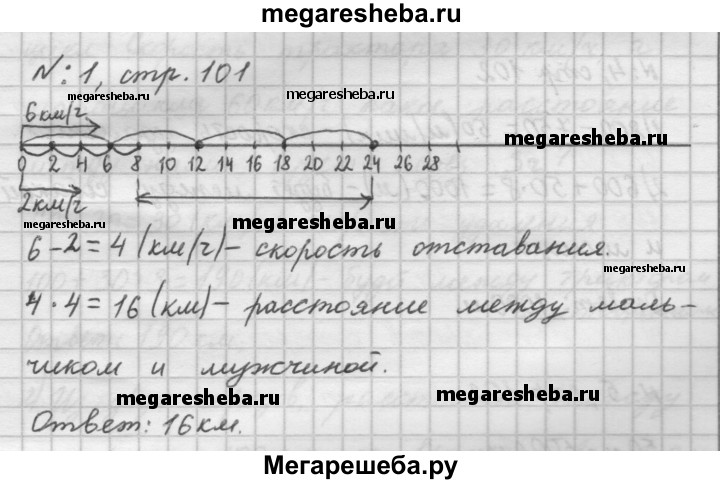 megaresheba.ru
№ 1, стр. 101
megaresheba.ru
megaresheba.ru
6км/ч
megaresheba.ru
0 2 4 6 8 10 12 14 16 18 20 22 24 26 28
2км/ч
megaresheba.ru
6-2=4 (км/ч)- скорость отставания.
megaresheba.ru
4·4=16 (км)- расстояние между маль-
чиком и мужчиной.
megaresheba.ru
megaresheba.ru
Ответ: 16км.
Мегарешеба.ру